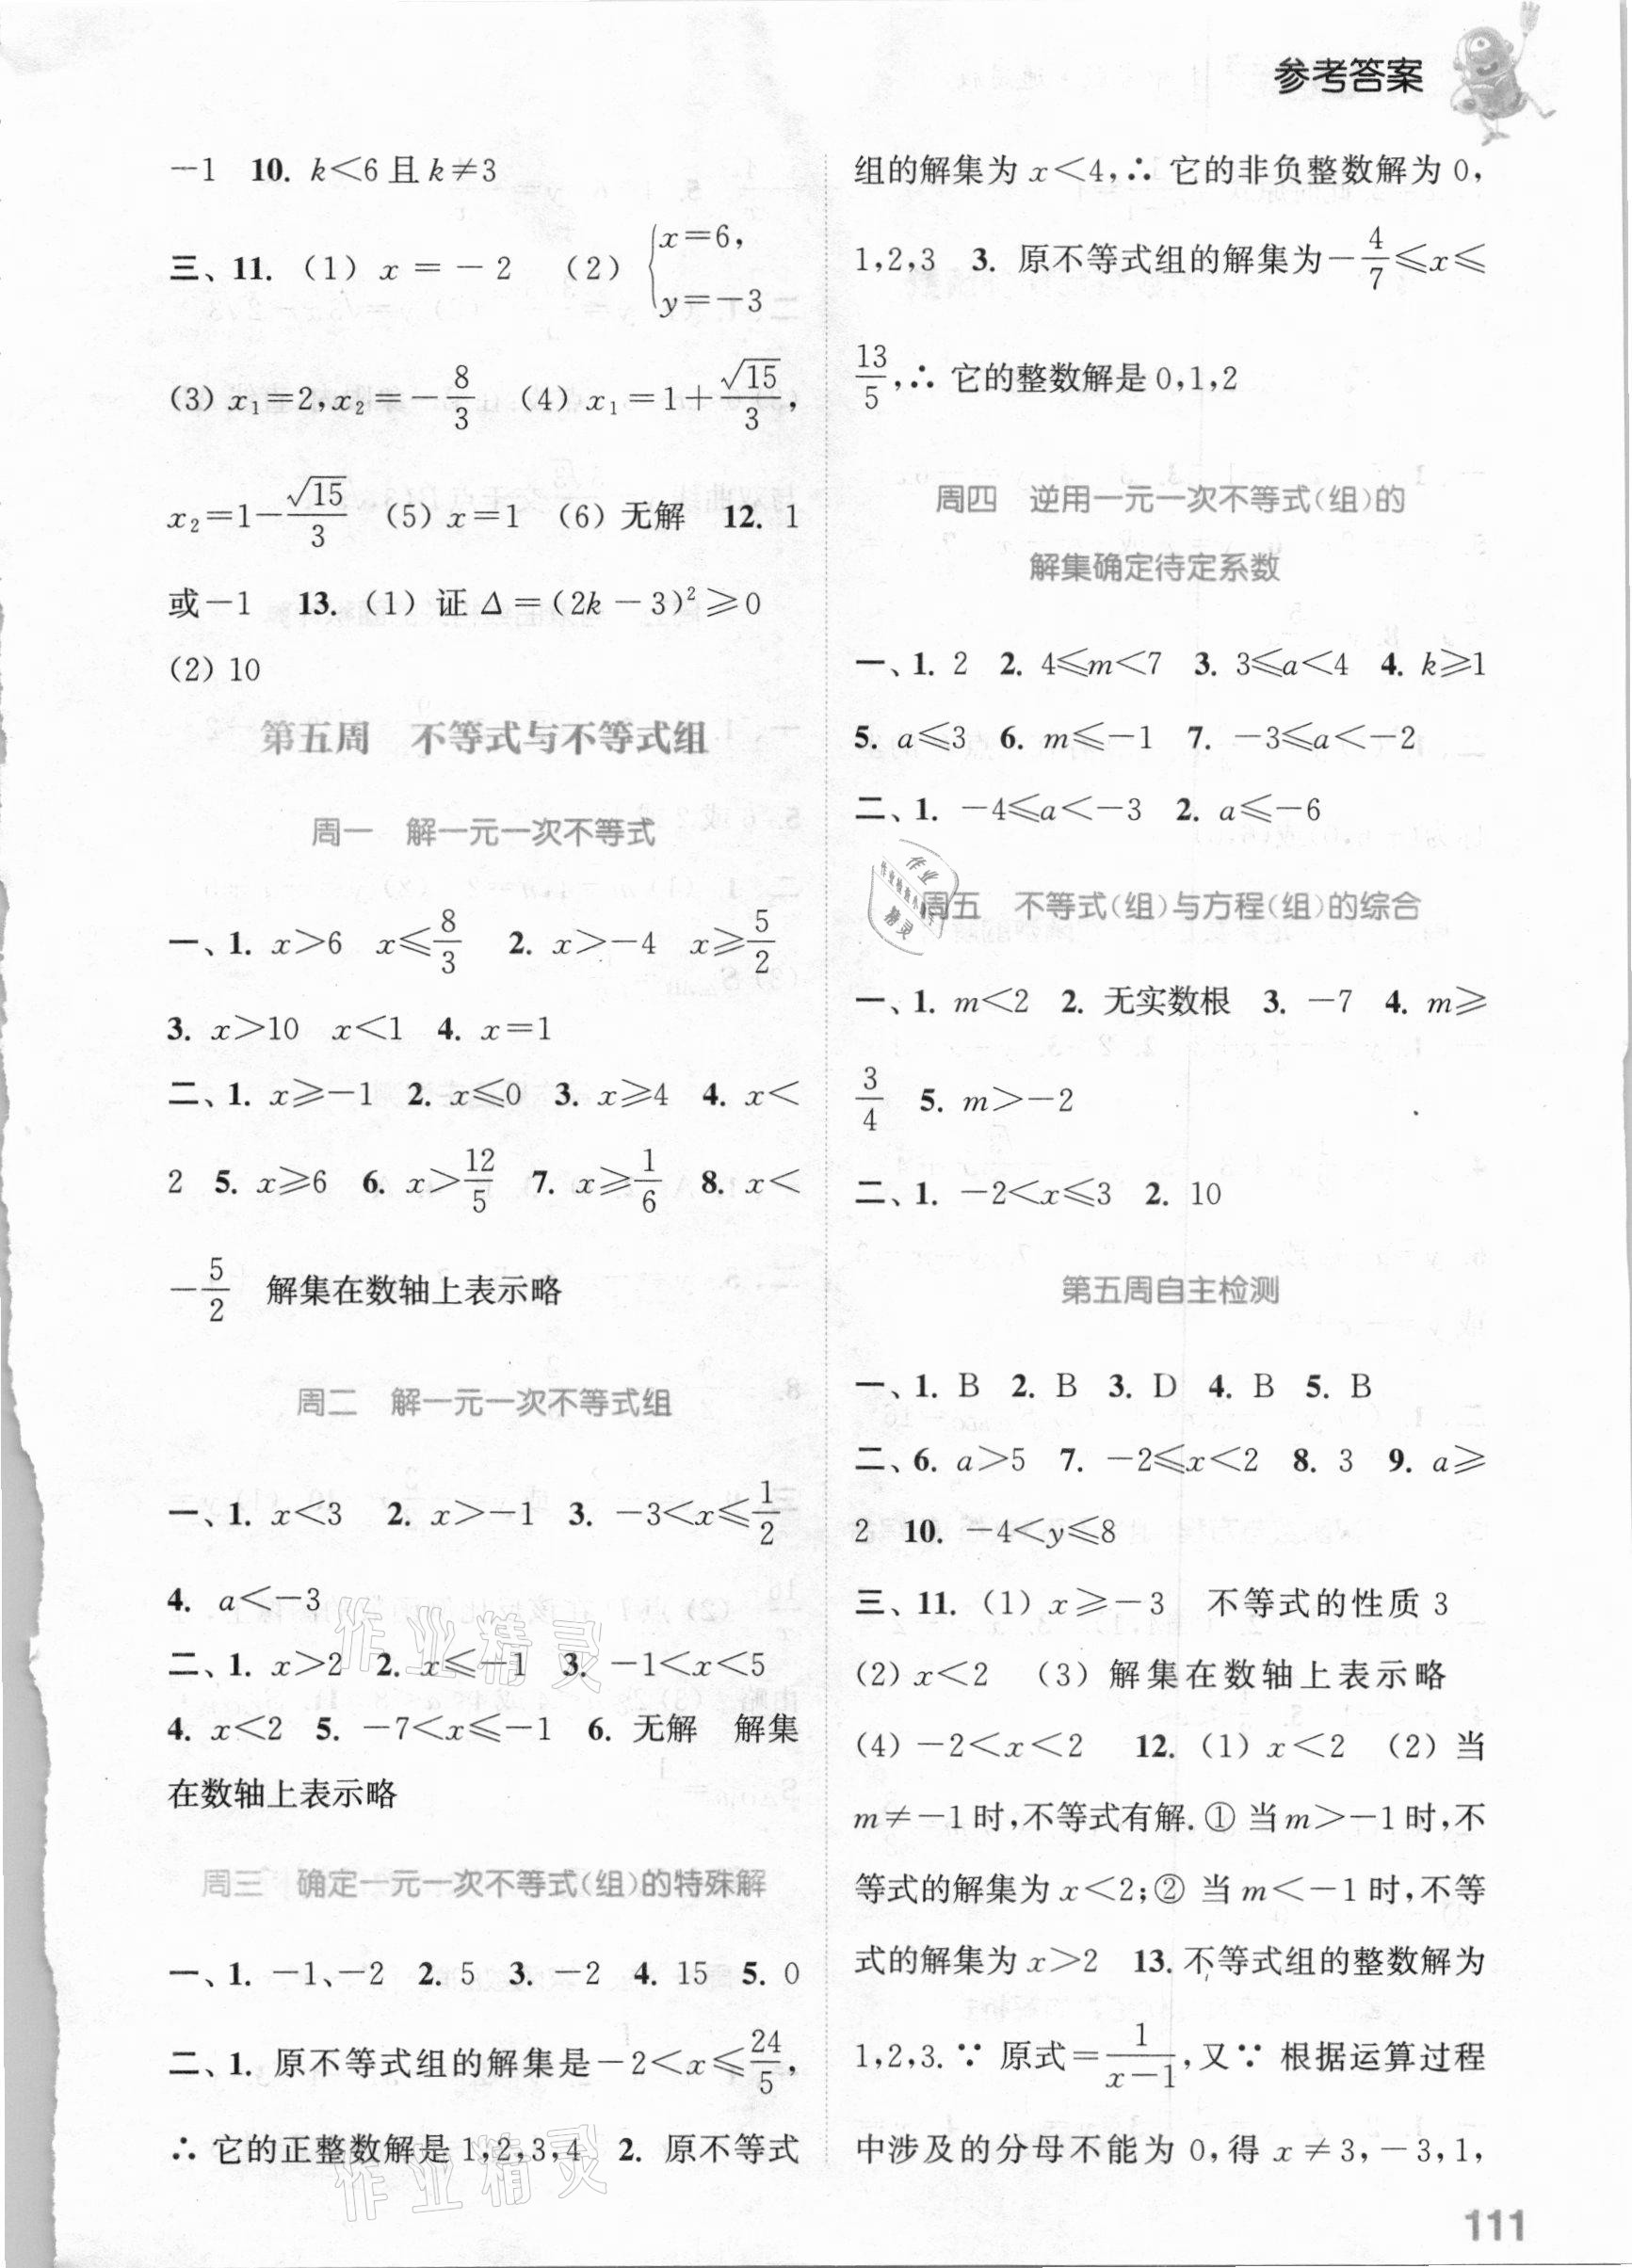 参考答案
－1　10. k＜6且k≠3
三、11.（1）x＝－2　（2）{x＝6,
y＝－3
（3）x₁＝2,x₂＝－8/3　（4）x₁＝1＋√15/3,
x₂＝1－√15/3　（5）x＝1　（6）无解　12. 1
或－1　13.（1）证 Δ＝(2k－3)²≥0
（2）10
第五周　不等式与不等式组
周一　解一元一次不等式
一、1. x＞6　x≤8/3　2. x＞－4　x≥5/2
3. x＞10　x＜1　4. x＝1
二、1. x≥－1　2. x≤0　3. x≥4　4. x＜
2　5. x≥6　6. x＞12/5　7. x≥1/6　8. x＜
－5/2　解集在数轴上表示略
周二　解一元一次不等式组
一、1. x＜3　2. x＞－1　3. －3＜x≤1/2
4. a＜－3
二、1. x＞2　2. x≤－1　3. －1＜x＜5
4. x＜2　5. －7＜x≤－1　6. 无解　解集
在数轴上表示略
周三　确定一元一次不等式(组)的特殊解
一、1. －1、－2　2. 5　3. －2　4. 15　5. 0
二、1. 原不等式组的解集是－2＜x≤24/5,
∴ 它的正整数解是1,2,3,4　2. 原不等式
组的解集为 x＜4,∴ 它的非负整数解为 0,
1,2,3　3. 原不等式组的解集为－4/7≤x≤
13/5,∴ 它的整数解是0,1,2
周四　逆用一元一次不等式(组)的
解集确定待定系数
一、1. 2　2. 4≤m＜7　3. 3≤a＜4　4. k≥1
5. a≤3　6. m≤－1　7. －3≤a＜－2
二、1. －4≤a＜－3　2. a≤－6
周五　不等式(组)与方程(组)的综合
一、1. m＜2　2. 无实数根　3. －7　4. m≥
3/4　5. m＞－2
二、1. －2＜x≤3　2. 10
第五周自主检测
一、1. B　2. B　3. D　4. B　5. B
二、6. a＞5　7. －2≤x＜2　8. 3　9. a≥
2　10. －4＜y≤8
三、11.（1）x≥－3　不等式的性质 3
（2）x＜2　（3）解集在数轴上表示略
（4）－2＜x＜2　12.（1）x＜2　（2）当
m≠－1时,不等式有解. ① 当m＞－1时,不
等式的解集为 x＜2;② 当 m＜－1 时,不等
式的解集为 x＞2　13. 不等式组的整数解为
1,2,3. ∵ 原式＝1/(x－1),又∵ 根据运算过程
中涉及的分母不能为 0,得 x≠3,－3,1,
111
作业精灵
作业精灵
作业
精灵